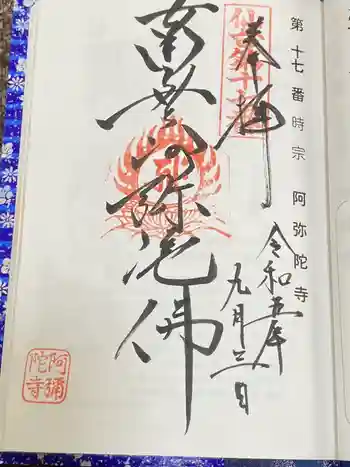 第十七番時宗　阿弥陀寺
奉拝
令和五年
九月三日
南無阿弥陀佛
阿彌
陀寺